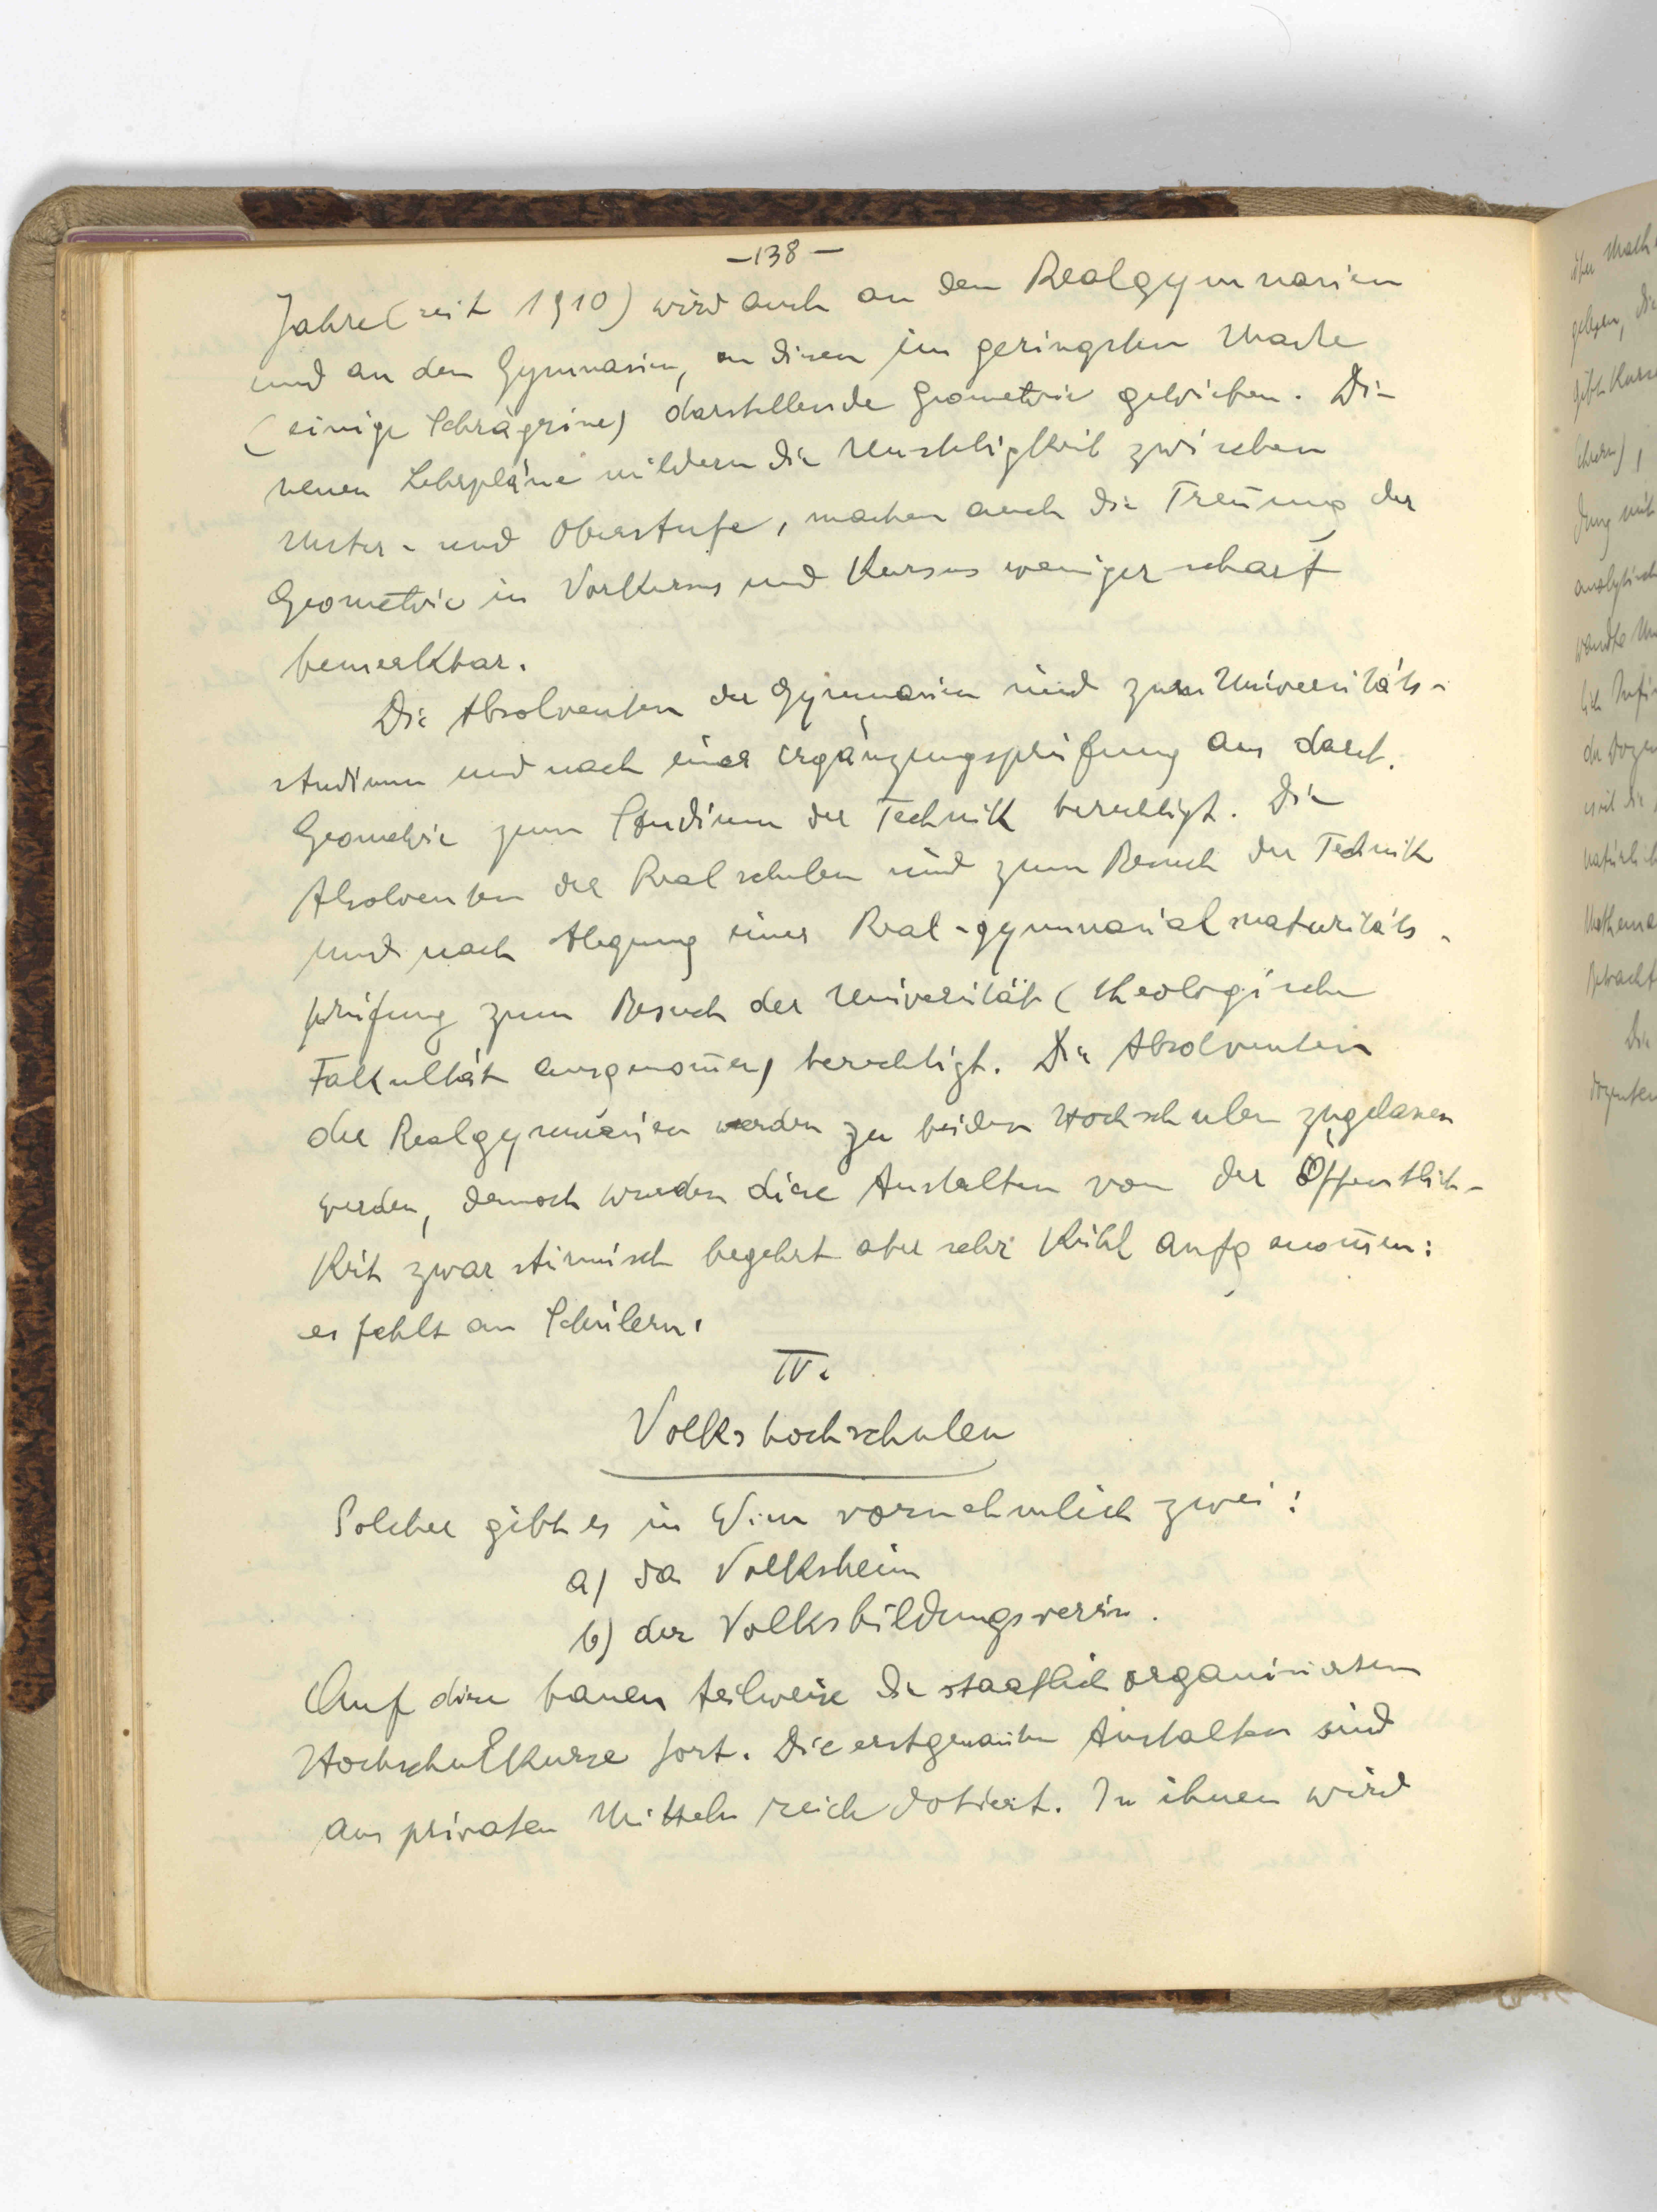 -138-
Jahre (seit 1910) wird auch an den Realgymnasien
und an den Gymnasien, an diesen im geringsten Masse
(einige Schrägrisse) darstellende Geometrie getrieben. Die
neuen Lehrpläne mildern die Unstetigkeit zwischen
Unter- und Oberstufe, machen auch die Treñung der
Geometrie in Vorkursus und Kursus weniger scharf
bemerkbar.
Die Absolventen der Gymnasien sind zum Universitäts-
studium und nach einer Ergänzungsprüfung aus darst.
Geometrie zum Studium der Technik berechtigt. Die
Absolventen der Realschulen sind zum Besuch der Technik
und nach Ablegung einer Real-gymnasialmaturitäts-
prüfung zum Besuch der Universität (theologische
Fakultät ausgenom̄en) berechtigt. Die Absolventen
der Realgymnasien werden zu beiden Hochschulen zugelassen
werden, dennoch wurden diese Anstalten von der Öffentlich-
keit zwar stürmisch begehrt aber sehr kühl aufgenom̄en:
es fehlt an Schülern.
IV.
Volkshochschulen
Solcher gibt es in Wien vornehmlich zwei:
a) das Volksheim
b) der Volksbildungsverein.
Auf diese bauen teilweise die staatlich organisierten
Hochschulkurse fort. Die erstgenañten Anstalten sind
aus privaten Mitteln reich dotiert. In ihnen wird